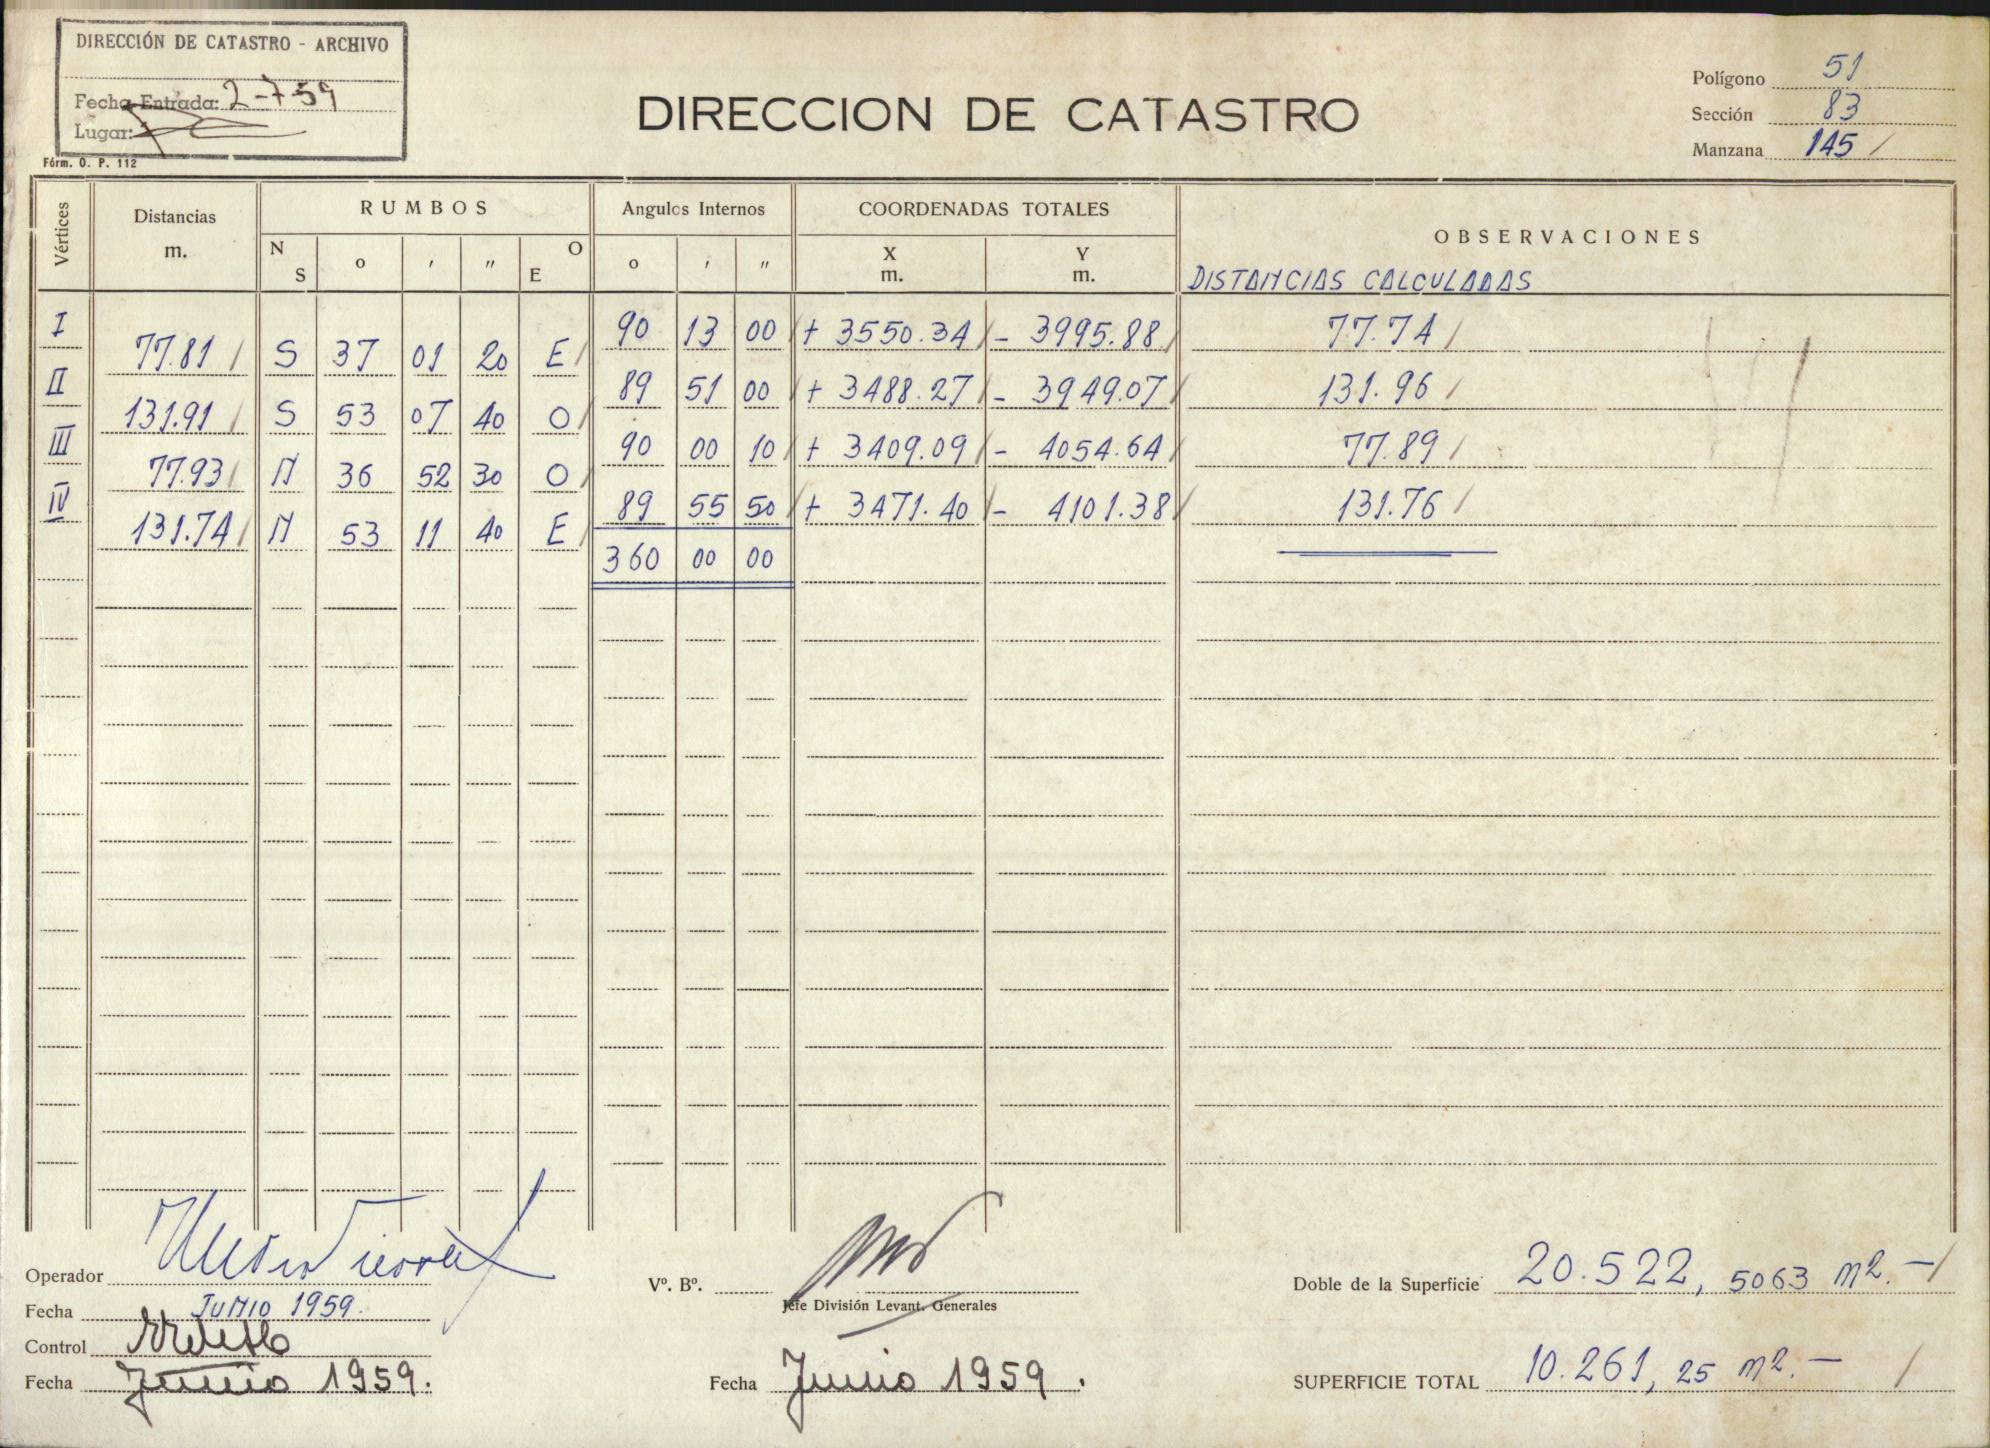 DIRECCIÓN DE CATASTRO - ARCHIVO
Fecha Entrada: 2-7-59
Lugar:
Fórm. O. P. 112
DIRECCION DE CATASTRO
Polígono 51
Sección 83
Manzana 145 /
Vértices Distancias m. RUMBOS Angulos Internos COORDENADAS TOTALES OBSERVACIONES
N S o ' " O E o ' " X m. Y m. DISTANCIAS CALCULADAS
I 90 13 00 / + 3550.34 / - 3995.88 / 77.74 /
77.81 / S 37 01 20 E /
II 89 51 00 / + 3488.27 / - 3949.07 / 131.96 /
131.91 / S 53 07 40 O /
III 90 00 10 / + 3409.09 / - 4054.64 / 77.89 /
77.93 / N 36 52 30 O /
IV 89 55 50 / + 3471.40 / - 4101.38 / 131.76 /
131.74 / N 53 11 40 E /
360 00 00
Operador
Fecha JUNIO 1959.
Control
Fecha Junio 1959.
Vº. Bº.
Jefe División Levant. Generales
Fecha Junio 1959.
Doble de la Superficie 20.522, 5063 m2. - /
SUPERFICIE TOTAL 10.261, 25 m2. - /